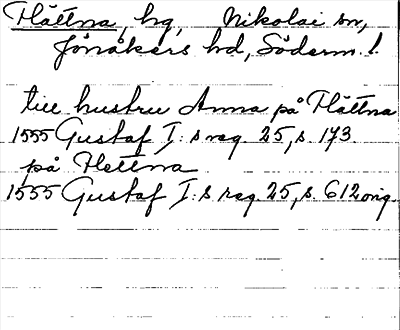 Hättna, hg, Nikolai sn,
Jönåkers hd, Söderm. l.
till hustru Anna på Hättna
1555 Gustaf I:s reg. 25, s. 173.
på Hettna
1555 Gustaf I:s reg. 25, s. 612 orig.